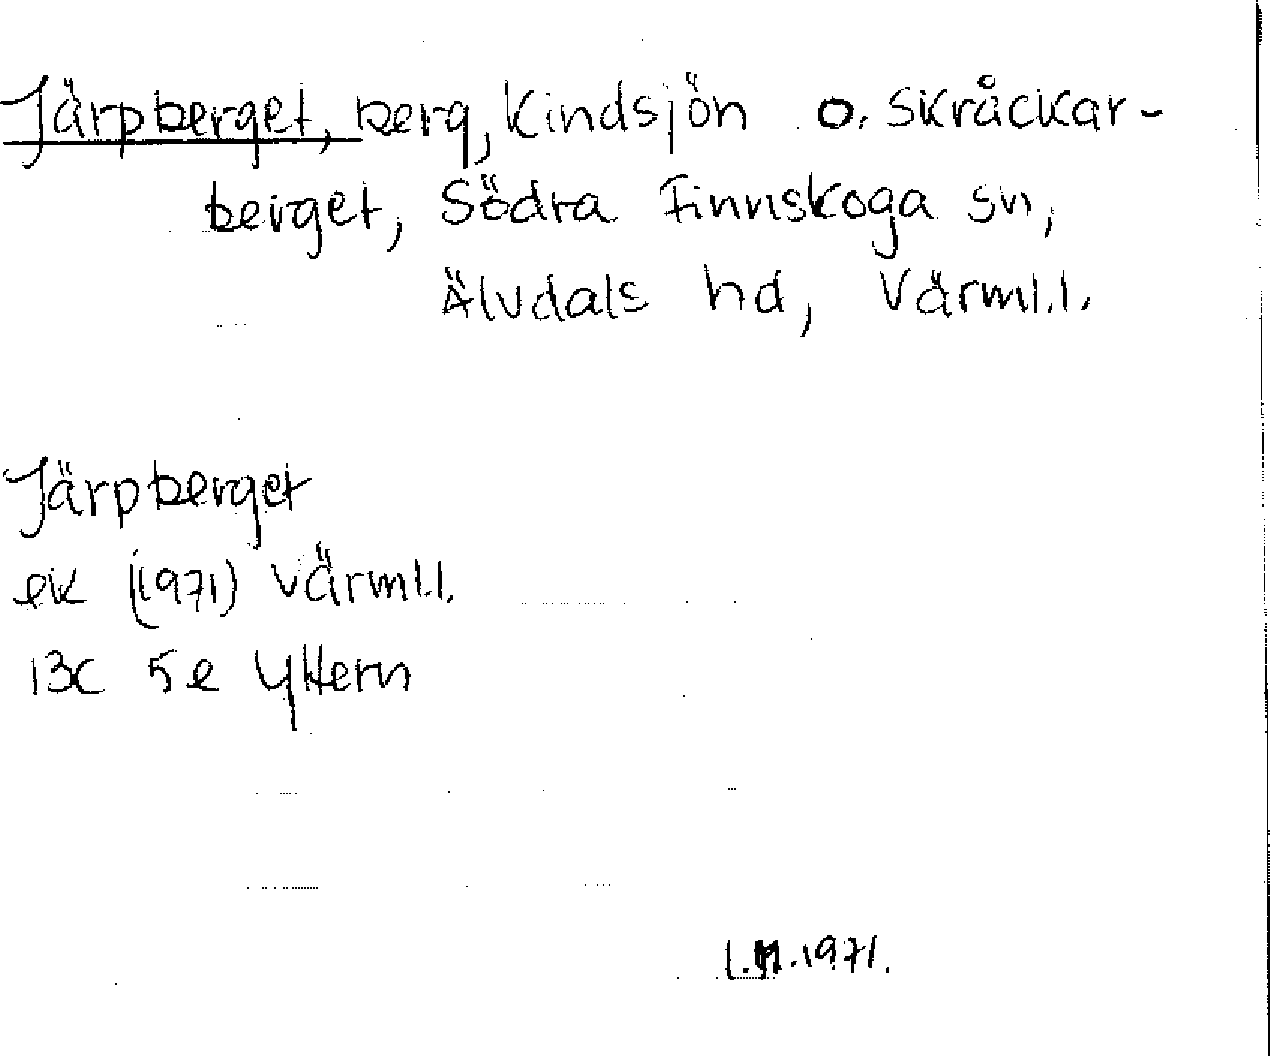 Järpberget, berg, Kindsjön o. Skråckar-
berget, Södra Finnskoga sn,
Älvdals hd, Värml.l.
Järpberget
ek (1971) Värml.l.
13C 5e Yttern
1971.